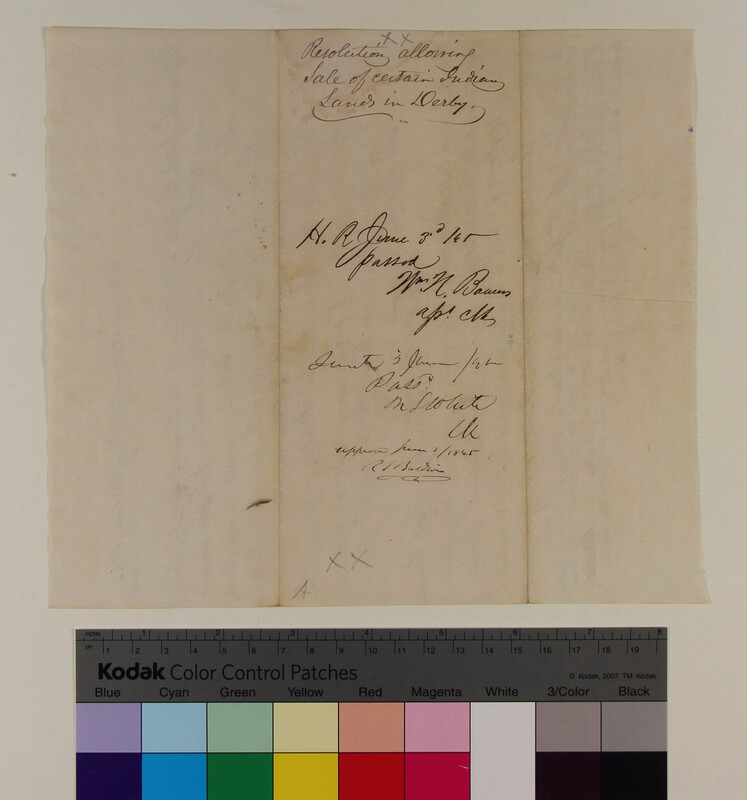 XX
Resolution allowing
Sale of certain Indian
Lands in Derby.
H. R. June 3d /45
passed
Wm N. Bowers
asst Clk
Senate 3 June /45
Passd
White
Clk
approved June 3/1845
R S Baldwin
XX
A
inches 1 2 3 4 5 6 7 8
cm 1 2 3 4 5 6 7 8 9 10 11 12 13 14 15 16 17 18 19
Kodak Color Control Patches
© Kodak, 2007 TM: Kodak
Blue Cyan Green Yellow Red Magenta White 3/Color Black